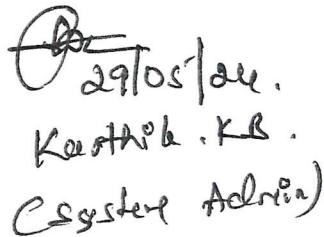 29/05/24.
Karthik . KB .
(System Admin)